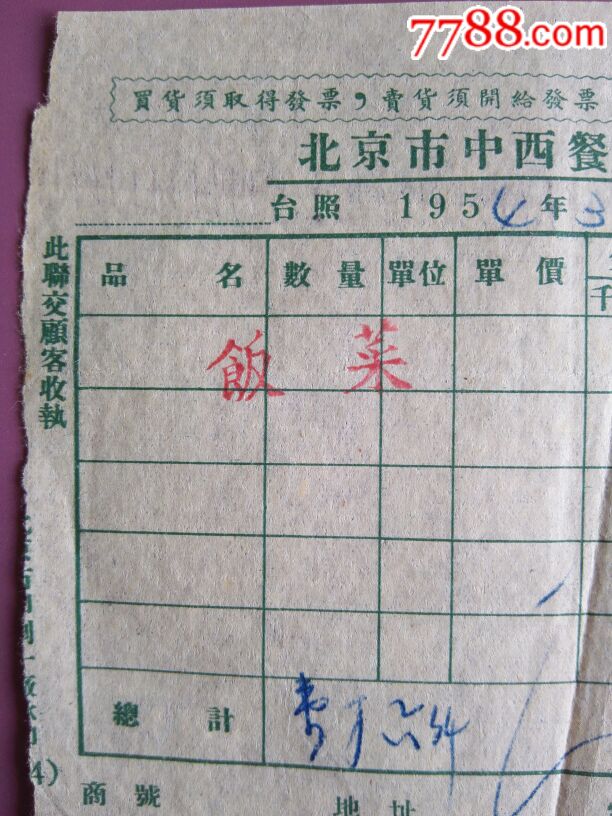 7788.com
買貨須取得發票，賣貨須開給發票
北京市中西餐
台照 1954年3
此聯交顧客收執
品名 數量 單位 單價
千
飯菜
總計
4)
商號 地址